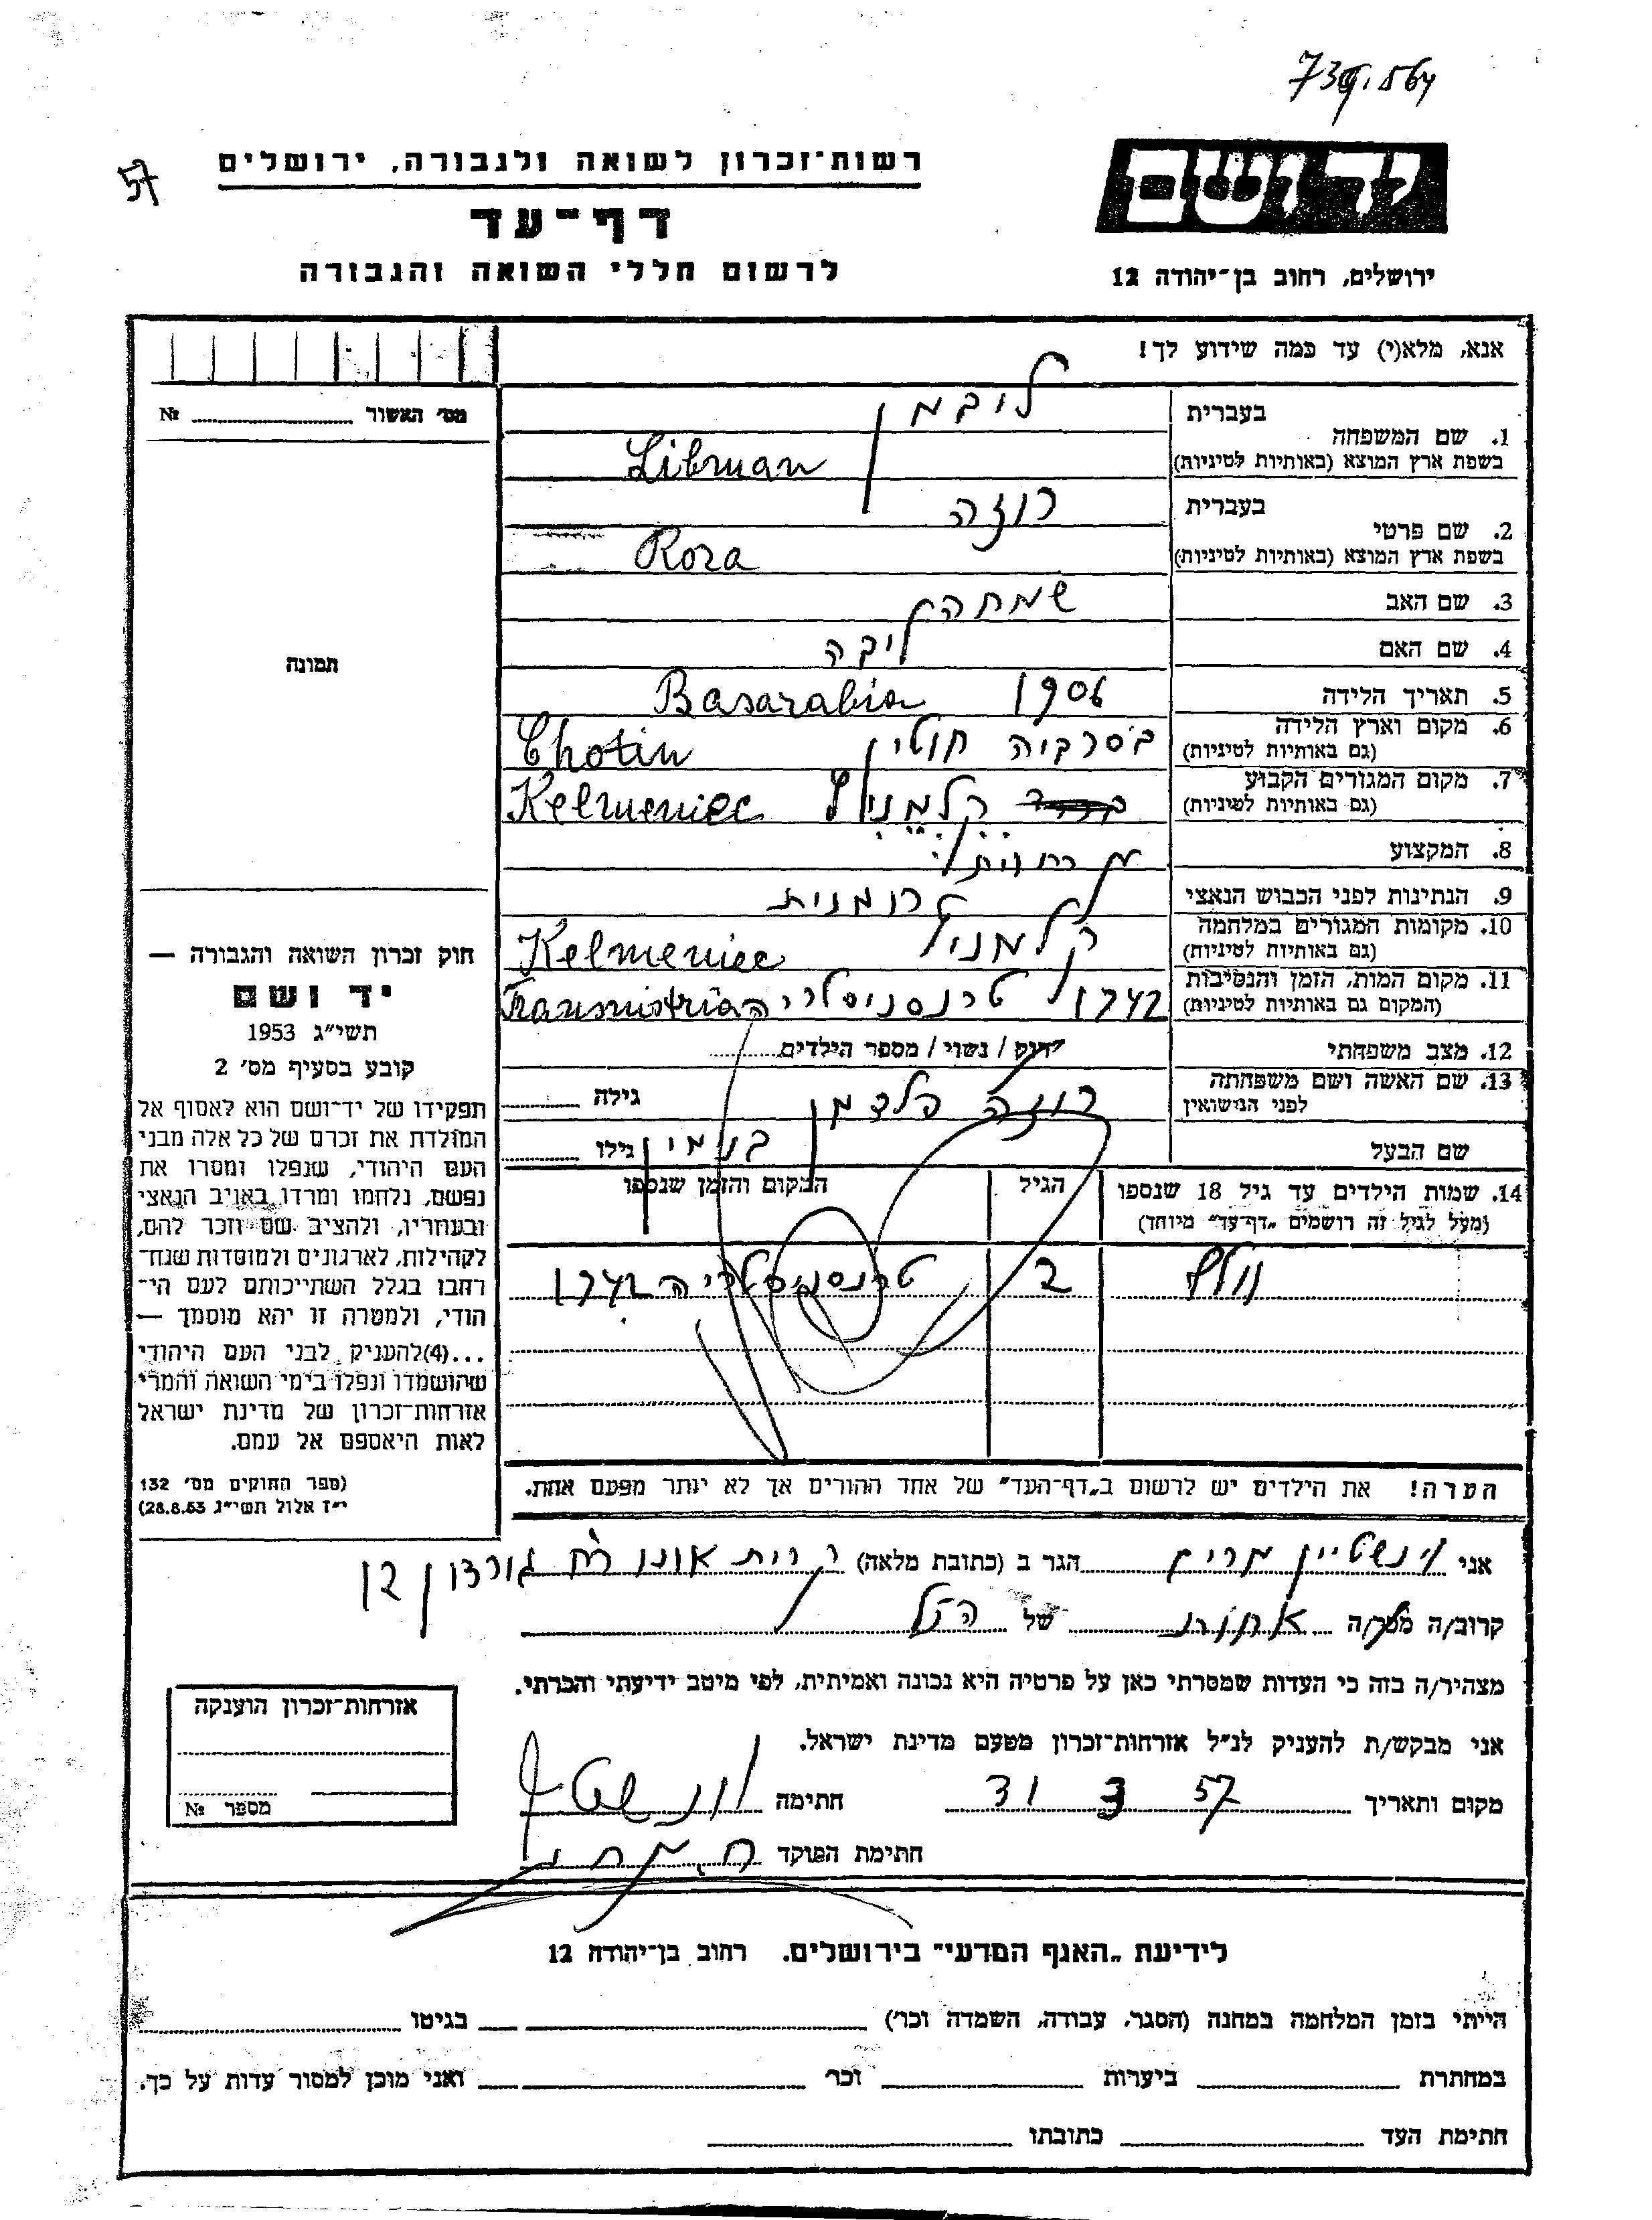 57
רשות־זכרון לשואה ולגבורה, ירושלים
דף־עד
לרשום חללי השואה והגבורה
יד ושם
ירושלים, רחוב בן־יהודה 12
אנא, מלא(י) עד כמה שידוע לך!
מס׳ האשור № 
1. שם המשפחה בעברית ליבמן
בשפת ארץ המוצא (באותיות לטיניות) Libman
2. שם פרטי בעברית רוזה
בשפת ארץ המוצא (באותיות לטיניות) Roza
3. שם האב שמחה
4. שם האם ליבה
5. תאריך הלידה 1906 Basarabia
6. מקום וארץ הלידה (גם באותיות לטיניות) בסרביה חוטין Chotin
7. מקום המגורים הקבוע (גם באותיות לטיניות) קלמניץ Kelmeniec
8. המקצוע
9. הנתינות לפני הכבוש הנאצי רומנית
10. מקומות המגורים במלחמה (גם באותיות לטיניות) קלמניץ Kelmeniec
11. מקום המות, הזמן והנסיבות (המקום גם באותיות לטיניות) 1942 טרנסניסטריה Transnistria
12. מצב משפחתי רווק / נשוי / מספר הילדים
13. שם האשה ושם משפחתה לפני הנישואין רוזה פלדמן גילה
שם הבעל בנימין גילו
14. שמות הילדים עד גיל 18 שנספו (מעל לגיל זה רושמים „דף־עד״ מיוחד) הגיל המקום והזמן שנספו
וולף 2 טרנסניסטריה 1942
הערה! את הילדים יש לרשום ב„דף־העד״ של אחד ההורים אך לא יותר מפעם אחת.
תמונה
חוק זכרון השואה והגבורה —
יד ושם
תשי״ג 1953
קובע בסעיף מס׳ 2
תפקידו של יד־ושם הוא לאסוף אל
המולדת את זכרם של כל אלה מבני
העם היהודי, שנפלו ומסרו את
נפשם, נלחמו ומרדו באויב הנאצי
ובעוזריו, ולהציב שם וזכר להם,
לקהילות, לארגונים ולמוסדות שנח־
רבו בגלל השתייכותם לעם הי־
הודי, ולמטרה זו יהא מוסמך —
...(4) להעניק לבני העם היהודי
שהושמדו ונפלו בימי השואה והמרי
אזרחות־זכרון של מדינת ישראל
לאות היאספם אל עמם.
(ספר החוקים מס׳ 132
י״ז אלול תשי״ג 28.8.53)
אני וינשטיין מרים הגר ב (כתובת מלאה) קרית אונו רח גורדון
קרוב/ה של הנ״ל
מצהיר/ה בזה כי העדות שמסרתי כאן על פרטיה היא נכונה ואמיתית, לפי מיטב ידיעתי והכרתי.
אני מבקש/ת להעניק לנ״ל אזרחות־זכרון מטעם מדינת ישראל.
מקום ותאריך 31 3 57 חתימה
חתימת הפוקד
אזרחות־זכרון הוענקה
מספר №
לידיעת „האגף המדעי״ בירושלים. רחוב בן־יהודה 12
הייתי בזמן המלחמה במחנה (הסגר, עבודה, השמדה וכו׳) בגיטו
במחתרת ביערות וכו׳ ואני מוכן למסור עדות על כך.
חתימת העד כתובתו